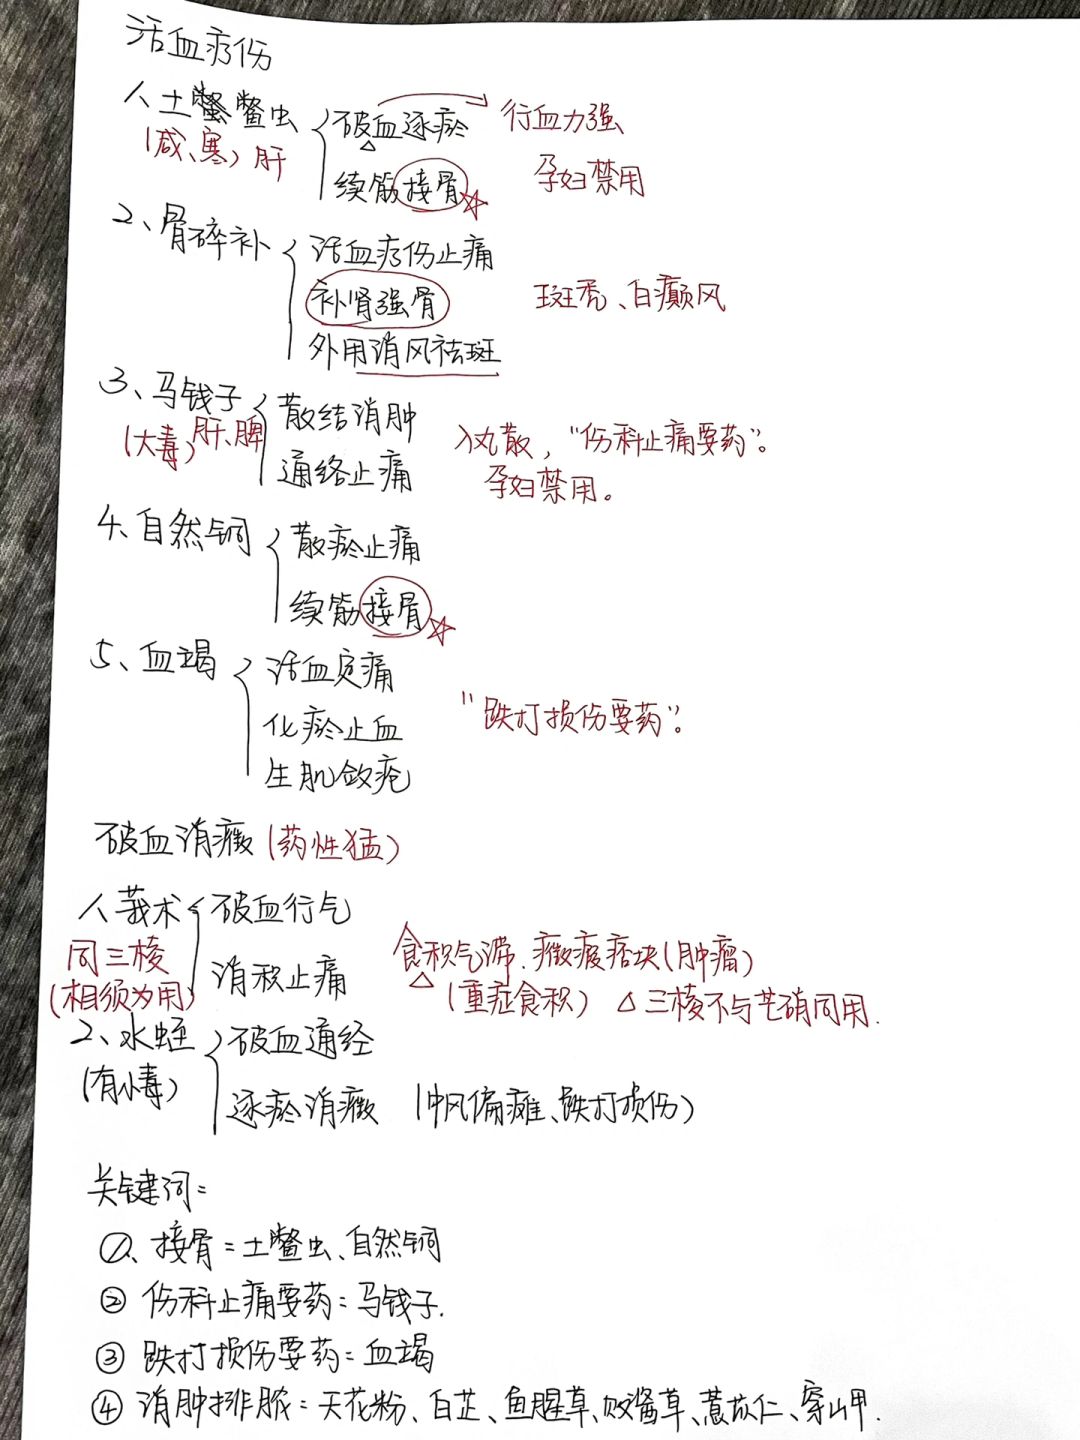 活血疗伤
1、土鳖虫 破血逐瘀 行血力强
(咸、寒) 肝 续筋接骨☆ 孕妇禁用
2、骨碎补 活血疗伤止痛
补肾强骨 斑秃、白癜风
外用消风祛斑
3、马钱子 散结消肿 入丸散，“伤科止痛要药”。
(大毒) 肝、脾 通络止痛 孕妇禁用。
4、自然铜 散瘀止痛
续筋接骨☆
5、血竭 活血定痛
化瘀止血 “跌打损伤要药”。
生肌敛疮
破血消癥 (药性猛)
1、莪术 破血行气
同三棱 消积止痛 食积气滞、癥瘕痞块(肿瘤)
(相须为用) (重症食积) △三棱不与芒硝同用.
2、水蛭 破血通经
(有小毒) 逐瘀消癥 (中风偏瘫、跌打损伤)
关键词:
①、接骨:土鳖虫、自然铜
② 伤科止痛要药:马钱子.
③ 跌打损伤要药:血竭
④ 消肿排脓:天花粉、白芷、鱼腥草、败酱草、薏苡仁、穿山甲.